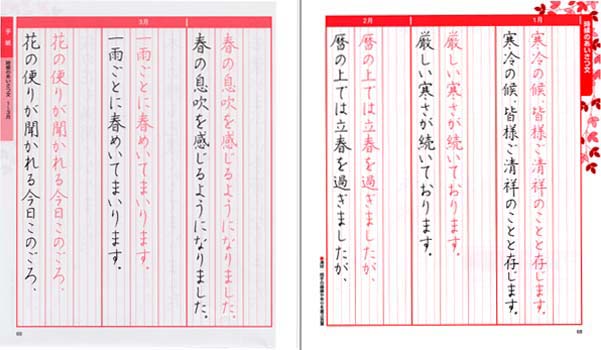 時候のあいさつ文
1月
寒冷の候、皆様ご清祥のことと存じます。
寒冷の候、皆様ご清祥のことと存じます。
厳しい寒さが続いております。
厳しい寒さが続いております。
2月
暦の上では立春を過ぎましたが、
暦の上では立春を過ぎましたが、
68
3月
春の息吹を感じるようになりました。
春の息吹を感じるようになりました。
一雨ごとに春めいてまいります。
一雨ごとに春めいてまいります。
花の便りが聞かれる今日このごろ、
花の便りが聞かれる今日このごろ、
手紙
時候のあいさつ文 1〜3月